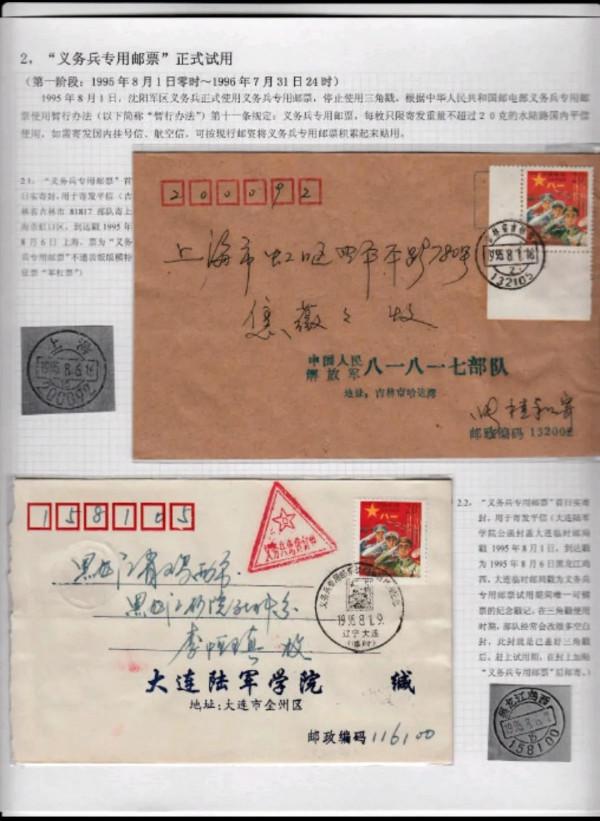 2，“义务兵专用邮票”正式试用
（第一阶段：1995年8月1日零时～1996年7月31日24时）
1995年8月1日，沈阳军区义务兵正式使用义务兵专用邮票，停止使用三角戳。根据中华人民共和国邮电部义务兵专用邮
票使用暂行办法（以下简称“暂行办法”）第十一条规定：义务兵专用邮票，每枚只限寄发重量不超过20克的水陆路国内平信
使用，如需寄发国内挂号信、航空信，可按现行邮资将义务兵专用邮票积累起来贴用。
2.1，“义务兵专用邮票”首
日实寄封，用于寄发平信（吉
林省吉林市 81817 部队寄上
海市虹口区，到达戳 1995年
8月6日 上海，票为“义务
兵专用邮票”不通齿版模特
征票“军杠票”）
200092
上海市虹口区四平路780号
焦薇 收
中国人民
解放军 八一八一七部队
地址：吉林市哈达湾
桂和寄
邮政编码 132002
八一
1995.8.1.18
132105
上海
1995.8.6.16
200092
158105
义务兵免费信件
八一
黑龙江省鸡西市
黑龙江
李 收
大连陆军学院 缄
地址：大连市金州区
邮政编码 116100
1995.8.1.9.
辽宁大连
（临时）
2.2，“义务兵专用邮票”首日实寄
封，用于寄发平信（大连陆军
学院公函封盖大连临时邮局
戳 1995年8月1日，到达戳
为 1995年8月6日黑龙江鸡
西。大连临时邮局戳为义务兵
专用邮票试用期间唯一可销票
的纪念戳记。在三角戳使用
时期，部队经常会改盖多空白
封，此封就是已盖好三角戳
后，赶上试用期，在封上加贴
“义务兵专用邮票”后邮寄。）
黑龙江鸡西
1995.8.6
158100